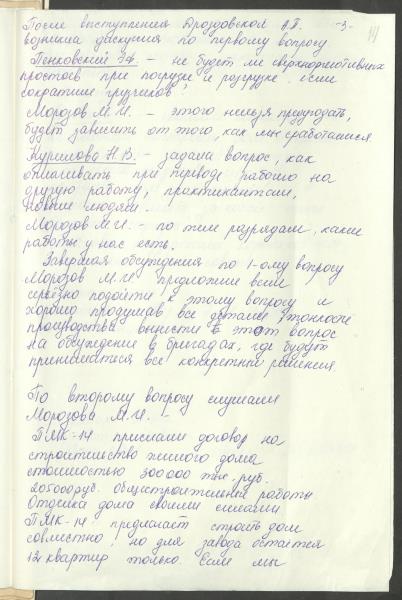 После выступления Дроздовской А.П. -3-
возникла дискуссия по первому вопросу
14
Пенковский – не будет ли сверхнормативных
простоев при погрузке и разгрузке, если
сократим грузчиков?
Морозов М.И. – этого нельзя предугадать,
будет зависеть от того, как мы сработаемся.
Курилова Н.В. – задала вопрос, как
оплачивать при переводе рабочего на
другую работу, практикантам,
новым людям.
Морозов М.И. – по тем разрядам, какие
работы у нас есть.
Завершая обсуждения по 1-ому вопросу
Морозов М.И. предложил всем
серьёзно подойти к этому вопросу и
хорошо продумав все детали, тонкости
производства вынести этот вопрос
на обсуждение в бригадах, где будут
приниматься все конкретные решения.
По второму вопросу слушали
Морозова М.И. –
ПМК-14 прислали договор на
строительство жилого дома
стоимостью 300000 тыс. руб.
205000 руб. общестроительные работы
Отделка дома своими силами
ПМК-14 предлагает строить дом
совместно, но для завода остаётся
12 квартир только. Если мы